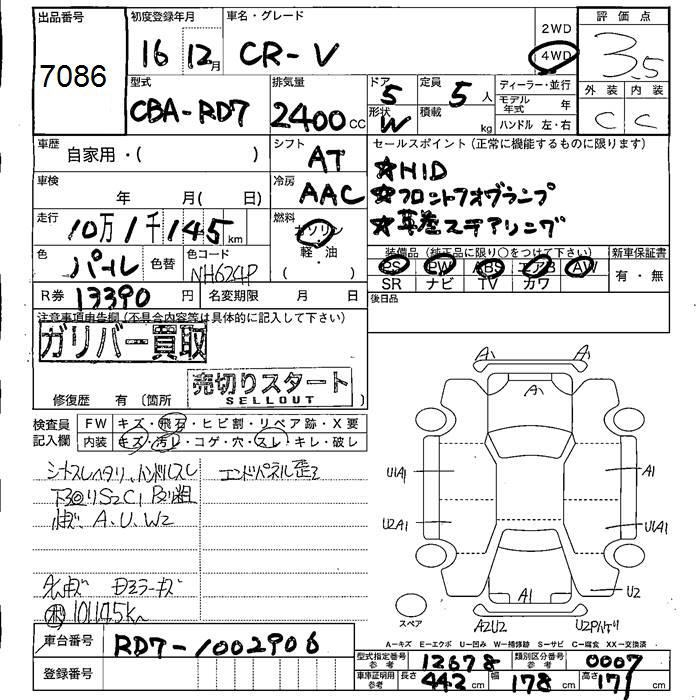 出品番号 初度登録年月 車名・グレード 2WD 評価点
7086 16 12月 CR-V 4WD 3.5
型式 排気量 ドア 定員 ディーラー・並行 外装 内装
CBA-RD7 2400cc 5 5人 モデル年式 年 C C
形状 W 積載 kg ハンドル 左・右
車歴 自家用・( ) シフト AT セールスポイント(正常に機能するものに限ります)
☆HID
車検 年 月( 日) 冷房 AAC ☆フロントフォグランプ
走行 10万1千145km 燃料 ガソリン ☆革巻ステアリング
軽・油
色 パール 色替 色コード NH624P 装備品(純正品に限り○をつけて下さい) 新車保証書
PS PW ABS エアB AW 有・無
SR ナビ TV カワ
R券 13390円 名変期限 月 日 後日品
注意事項申告欄(不具合内容等は具体的に記入して下さい)
ガリバー買取
売切りスタート
SELLOUT
修復歴 有(箇所 )
検査員記入欄 FW キズ・飛石・ヒビ割・リペア跡・X要
内装 キズ・汚レ・コゲ・穴・スレ・キレ・破レ
シートスレヘタリ、ハンドルスレ エンドパネル歪ミ
下回りS2C1
A、U、W2
101145K
A A
A
U1A1 A1
U2A1 U1A1
U2
A1
スペア A2U2
A-キズ E-エクボ U-凹み W-補修跡 S-サビ C-腐食 XX-交換済
車台番号 RD7-1002906
型式指定番号 参考 12678 類別区分番号 参考 0007
登録番号
車庫証明用 参考 長さ 442cm 幅 178cm 高さ 171cm